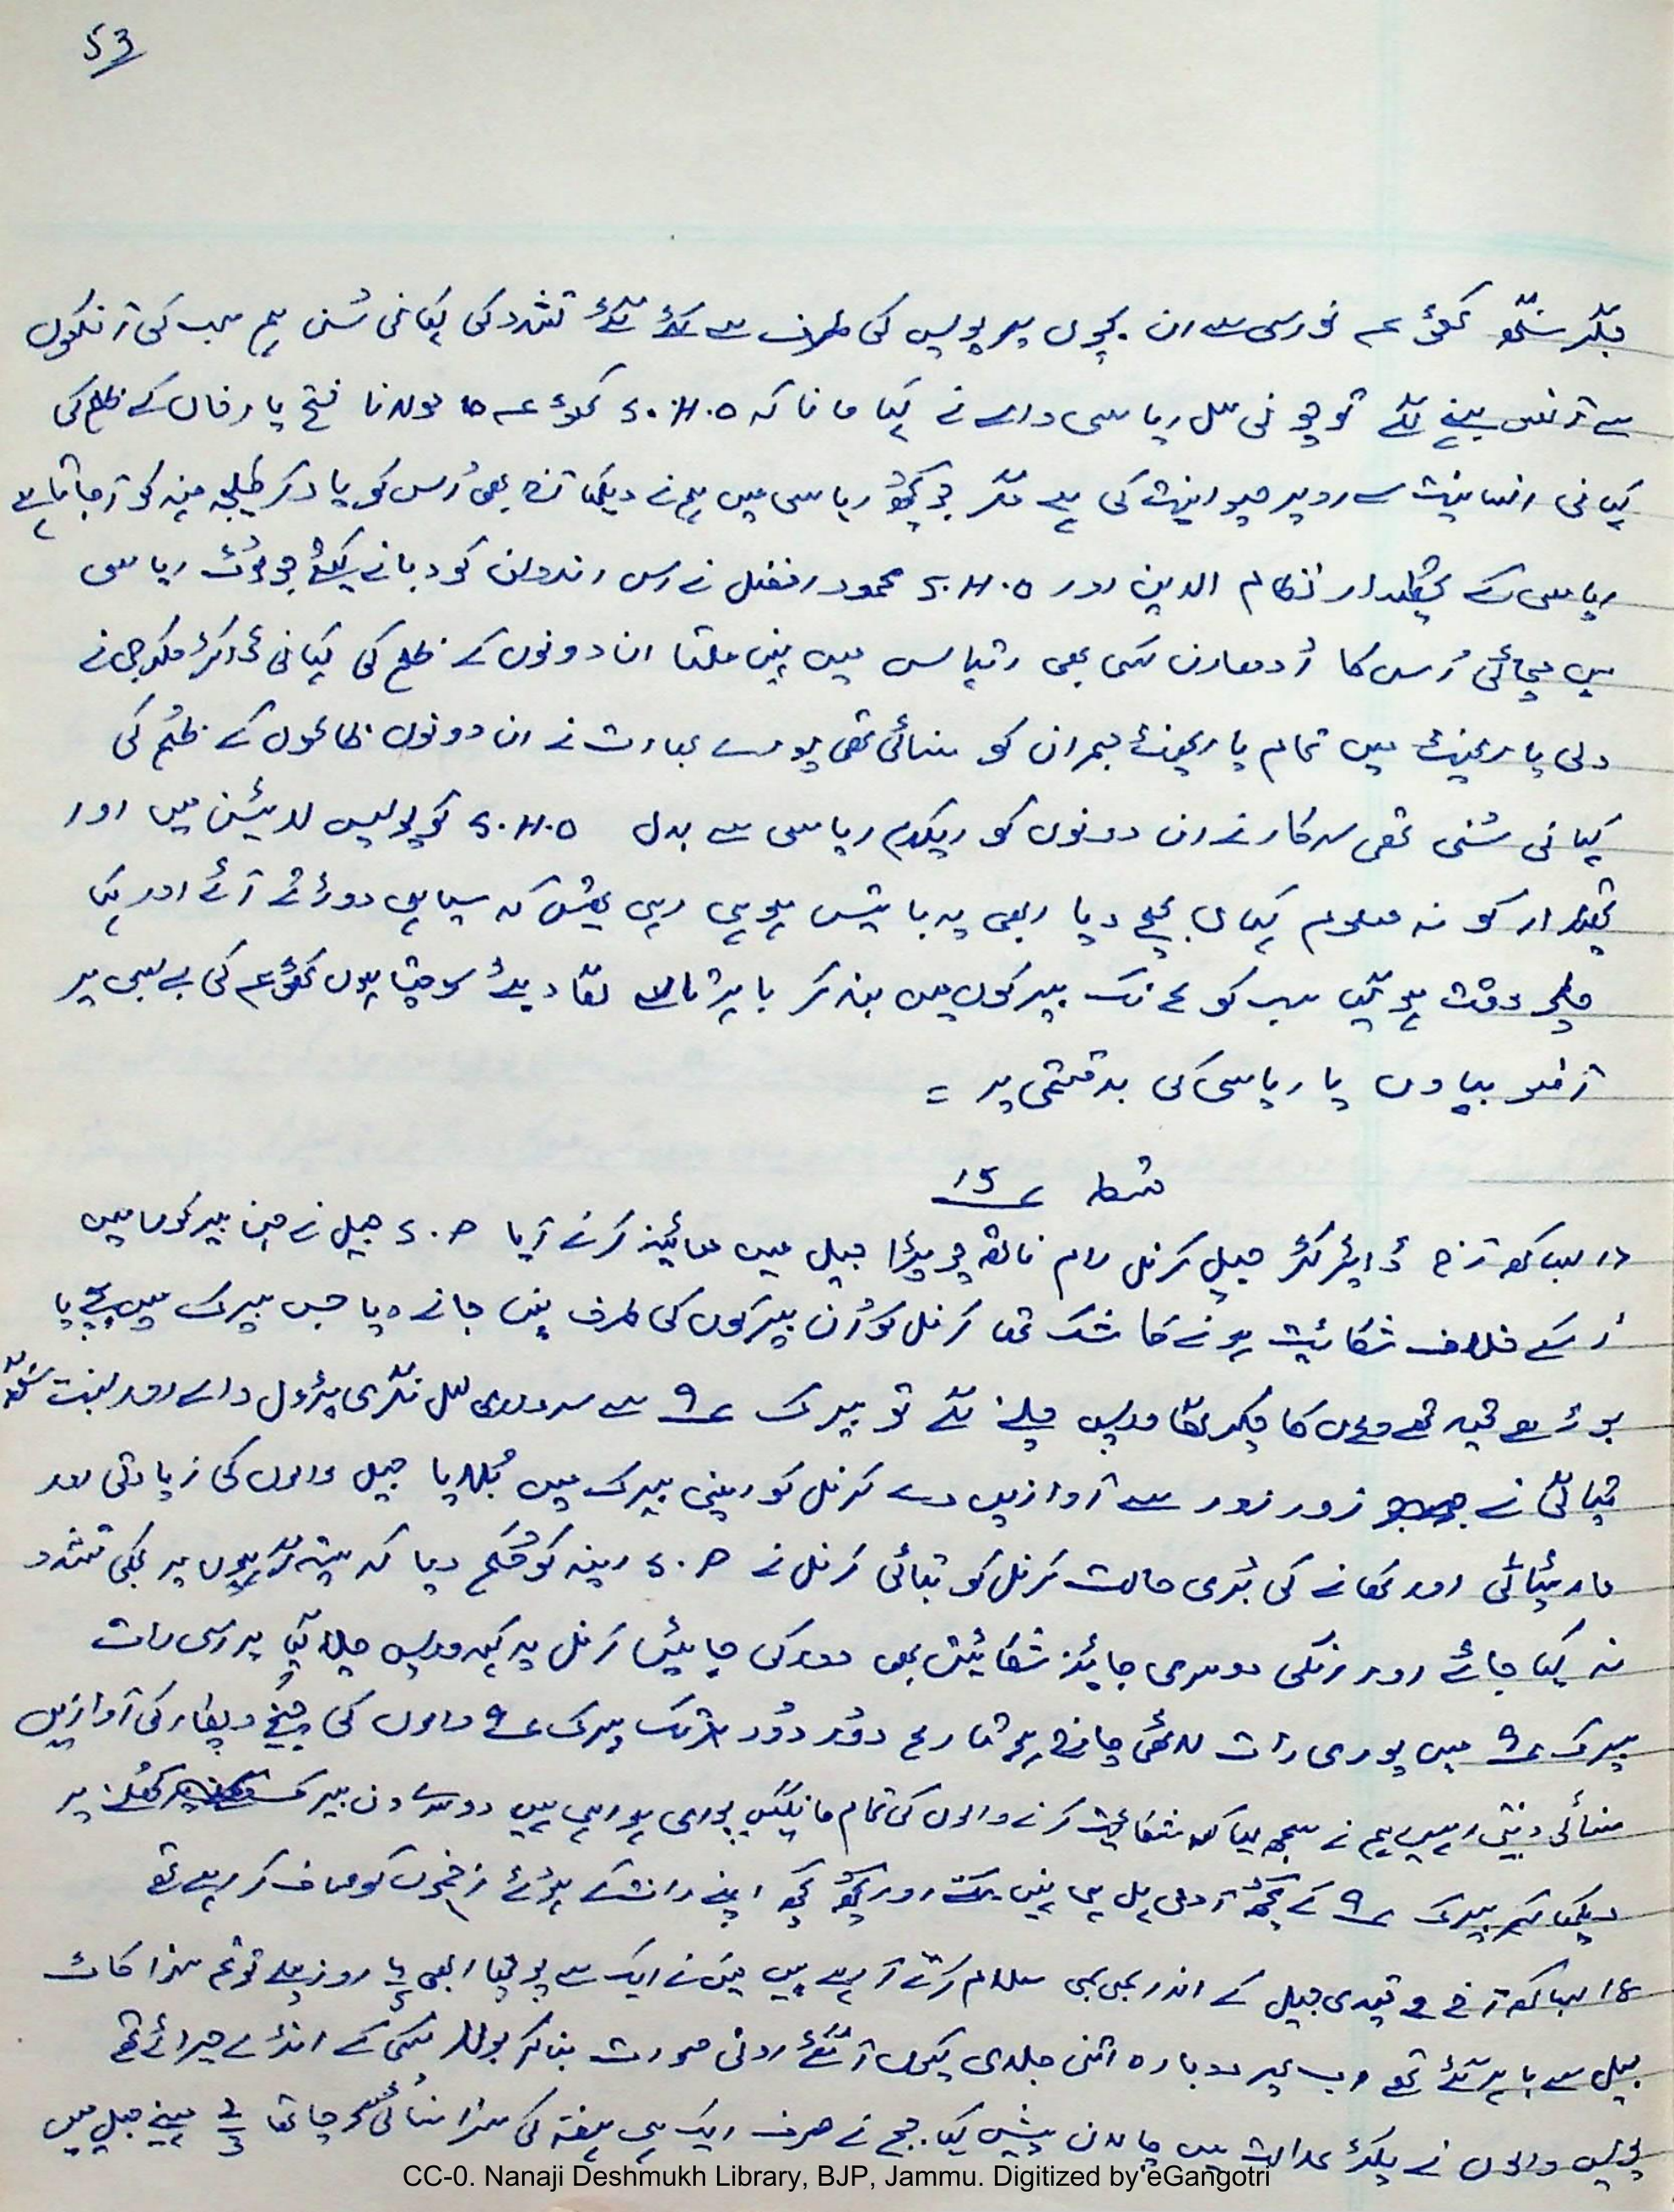 53
سنگھ کھوئے نورسی سے ان بچوں پر پولیس کی طرف سے کئے گئے تشدد کی کہانی سُن ہم سب کی آنکھوں
سے آنسو بہنے لگے تو چونی لال ریاسی والے نے کہا مانا کہ S.H.O کھوئے مولانا فتح یارخاں کے ظلم کی
کہانی انسانیت سے اوپر حیوانیت کی ہے مگر جو کچھ ریاسی میں ہم نے دیکھا آج بھی اُس کو یاد کر کلیجہ منہ کو آجاتا ہے
ریاسی کے تحصیلدار نظام الدین اور S.H.O محمود افضل نے اس اندولن کو دبانے کیلئے جو لوٹ ریاسی
میں مچائی اُس کا اُدھارن کسی بھی اتہاس میں نہیں ملتا ان دونوں کے ظلم کی کہانی ڈاکٹر مکرجی نے
دلی پارلیمنٹ میں تمام پارلیمنٹ ممبران کو سنائی تھی پورے بھارت نے ان دونوں ظالموں کے ظلم کی
کہانی سُنی تھی سرکار نے ان دونوں کو ایکدم ریاسی سے بدل S.H.O کو پولیس لائین میں اور
تحصیلدار کو نہ معلوم کہاں بھیج دیا ابھی یہ باتیں ہو ہی رہی تھیں کہ سپاہی دوڑتے آئے اور کہا
چلو وقت ہو گیا سب کو تک بیرکوں میں بند کر باہر تالے لگا دیئے سوچتا ہوں کھوئے کی بے بسی پر
آنسو بہاوں یا ریاسی کی بدقسمتی پر =
قسط ؁ 15
بساکھ آج ڈائریکٹر جیل کرنل رام ناتھ چوپڑا جیل میں معائینہ کرنے آیا S.P جیل نے جن بیرکوں میں
اُسکے خلاف شکائیت ہونے کا شک تھا کرنل کو اُن بیرکوں کی طرف نہیں جانے دیا جس بیرک میں بچے یا
بوڑھے قید تھے وہاں کا چکر لگا واپس چلنے لگے تو بیرک ؁ 9 سے سردادی لعل نگری پٹرول والے اور بسنت سنگھ
نے زور زور سے آوازیں دے کرنل کو اپنی بیرک میں بُلایا جیل والوں کی زیادتی اور
مار پٹائی اور کھانے کی بُری حالت کرنل کو بتائی کرنل نے S.P رینہ کو حُکم دیا کہ ستیہ گرہیوں پر کوئی تشدد
نہ کیا جائے اور انکی دوسری جائیز شکائیتیں بھی دور کی جائیں کرنل یہ کہہ واپس چلا گیا پر اسی رات
بیرک ؁ 9 میں پوری رات لاٹھی چارج ہوتا رہا دور دُور تک بیرک ؁ 9 والوں کی چیخ و پکار کی آوازیں
سنائی دیتی رہیں ہم نے سمجھ لیا کہ شکائیت کرنے والوں کی تمام مانگیں پوری ہو رہی ہیں دوسرے دن بیرک کھلنے پر
دیکھا کہ بیرک ؁ 9 کے کچھ آدمی ہل ہی نہیں سکتے اور کچھ اپنے زخموں کو صاف کر رہے تھے
18 بساکھ آج قیدی جیل کے اندر بھی سلام کرتے آ رہے ہیں میں نے ایک سے پوچھا ابھی روز پہلے تو تم سزا کاٹ
جیل سے باہر گئے تھے اب پھر دوبارہ اتنی جلدی کیوں آ گئے رونی صورت بنا کر بولا کسی کے انڈے چرائے تھے
پولیس والوں نے پکڑ عدالت میں چالان پیش کیا۔ جج نے صرف ایک ہی ہفتہ کی سزا سنائی سوچا تھا 2/3 مہینے جیل میں
CC-0. Nanaji Deshmukh Library, BJP, Jammu. Digitized by eGangotri